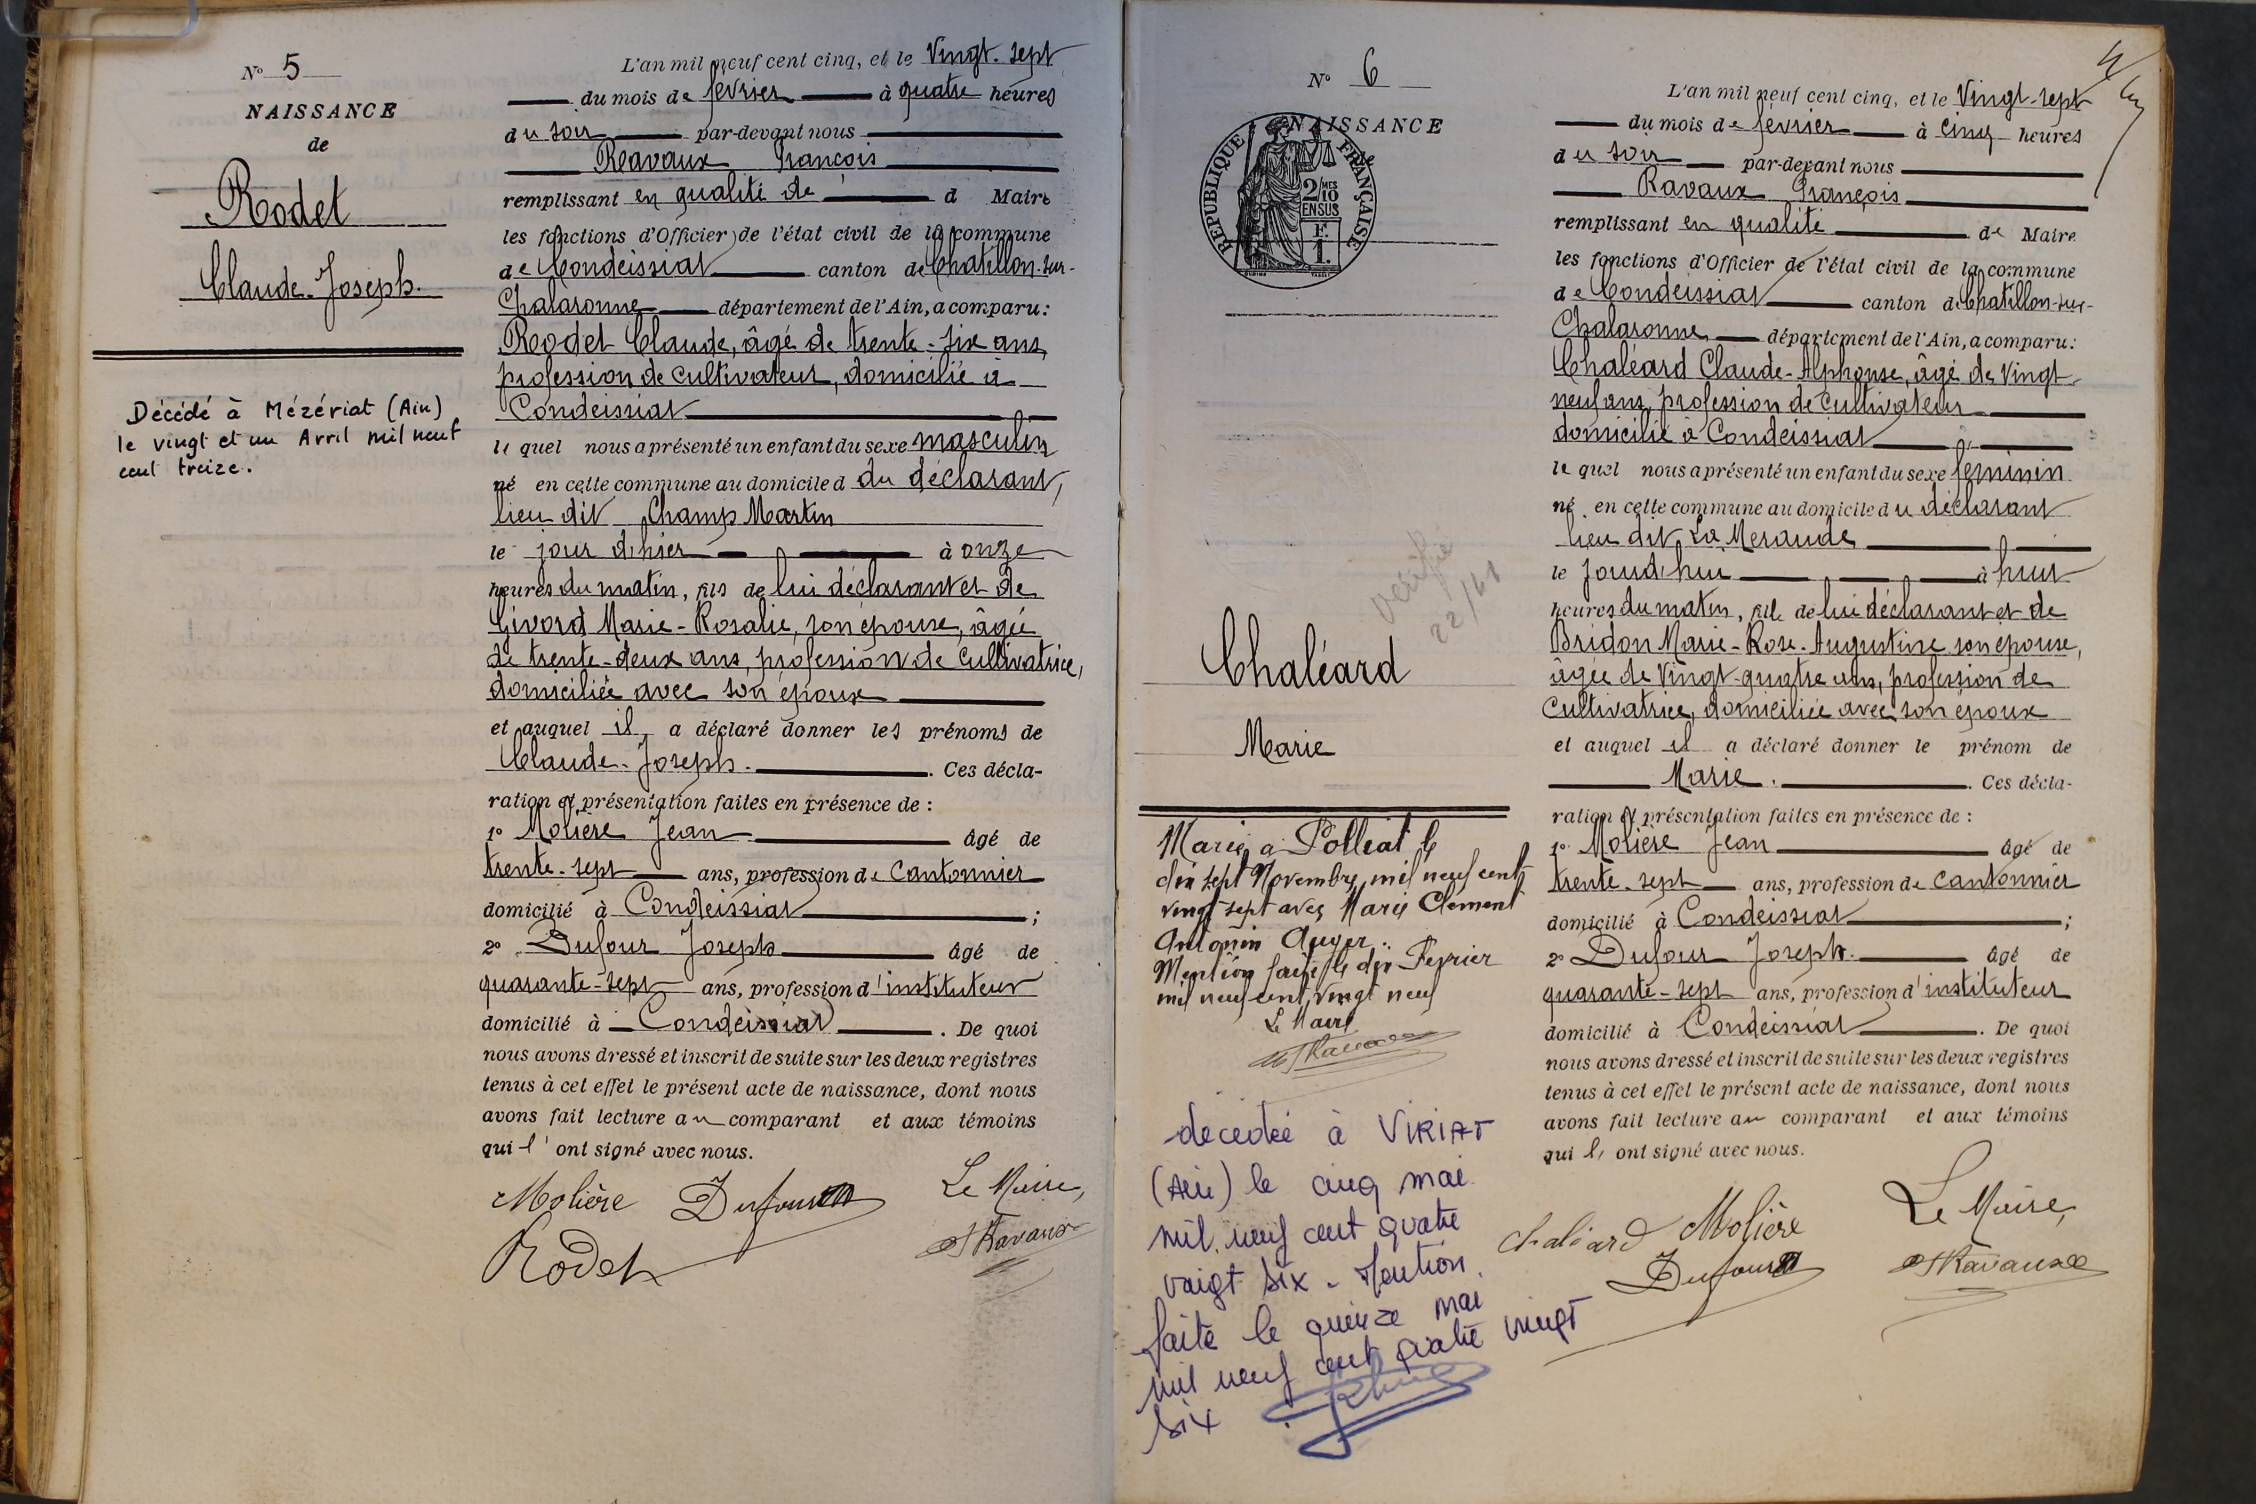 N° 5
NAISSANCE
de
Rodet
Claude-Joseph.
Décédé à Mézériat (Ain)
le vingt et un Avril mil neuf
cent treize.
L'an mil neuf cent cinq, et le Vingt-sept
du mois de février à quatre heures
du soir par-devant nous
Ravaux François
remplissant en qualité de d Maire
les fonctions d'Officier de l'état civil de la commune
de Condeissiat canton de Chatillon-sur-
Chalaronne département de l'Ain, a comparu:
Rodet Claude, âgé de trente-six ans,
profession de cultivateur, domicilié à
Condeissiat
le quel nous a présenté un enfant du sexe masculin
né en cette commune au domicile d du déclarant,
lieu dit Champ Martin
le jour d'hier à onze
heures du matin, fils de lui déclarant et de
Givord Marie-Rosalie, son épouse, âgée
de trente-deux ans, profession de Cultivatrice,
domiciliée avec son époux
et auquel il a déclaré donner les prénoms de
Claude-Joseph. Ces décla-
ration et présentation faites en présence de :
1° Molière Jean âgé de
trente-sept ans, profession de Cantonnier
domicilié à Condeissiat ;
2° Dufour Joseph âgé de
quarante-sept ans, profession d'instituteur
domicilié à Condeissiat . De quoi
nous avons dressé et inscrit de suite sur les deux registres
tenus à cet effet le présent acte de naissance, dont nous
avons fait lecture au comparant et aux témoins
qui l'ont signé avec nous.
Molière Dufour Le Maire,
Rodet Ravaux
N° 6
NAISSANCE
RÉPUBLIQUE FRANÇAISE
2/10 MES
EN SUS
F.
1.
vérifié
22/41
Chaléard
Marie
Mariée à Polliat le
dix sept Novembre mil neuf cent
vingt-sept avec Marie Clément
Antonin Auger.
Mention faite le dix Février
mil neuf cent vingt neuf
Le Maire
Ravaux
décédée à VIRIAT
(Ain) le cinq mai
mil neuf cent quatre
vingt six - Mention
faite le quinze mai
mil neuf cent quatre vingt
six
L'an mil neuf cent cinq, et le Vingt-sept
du mois de février à cinq heures
du soir par-devant nous
Ravaux François
remplissant en qualité de Maire
les fonctions d'Officier de l'état civil de la commune
de Condeissiat canton de Chatillon-sur-
Chalaronne département de l'Ain, a comparu:
Chaléard Claude-Alphonse, âgé de Vingt-
neuf ans, profession de Cultivateur
domicilié à Condeissiat
le quel nous a présenté un enfant du sexe féminin
né en cette commune au domicile du déclarant
lieu dit La Meraude
le jourd'hui à huit
heures du matin, fille de lui déclarant et de
Bridon Marie-Rose-Augustine son épouse,
âgée de Vingt-quatre ans, profession de
Cultivatrice, domiciliée avec son époux
et auquel il a déclaré donner le prénom de
Marie. Ces décla-
ration et présentation faites en présence de :
1° Molière Jean âgé de
trente-sept ans, profession de cantonnier
domicilié à Condeissiat ;
2° Dufour Joseph. âgé de
quarante-sept ans, profession d'instituteur
domicilié à Condeissiat . De quoi
nous avons dressé et inscrit de suite sur les deux registres
tenus à cet effet le présent acte de naissance, dont nous
avons fait lecture au comparant et aux témoins
qui l'ont signé avec nous.
Chaléard Molière Le Maire,
Dufour Ravaux